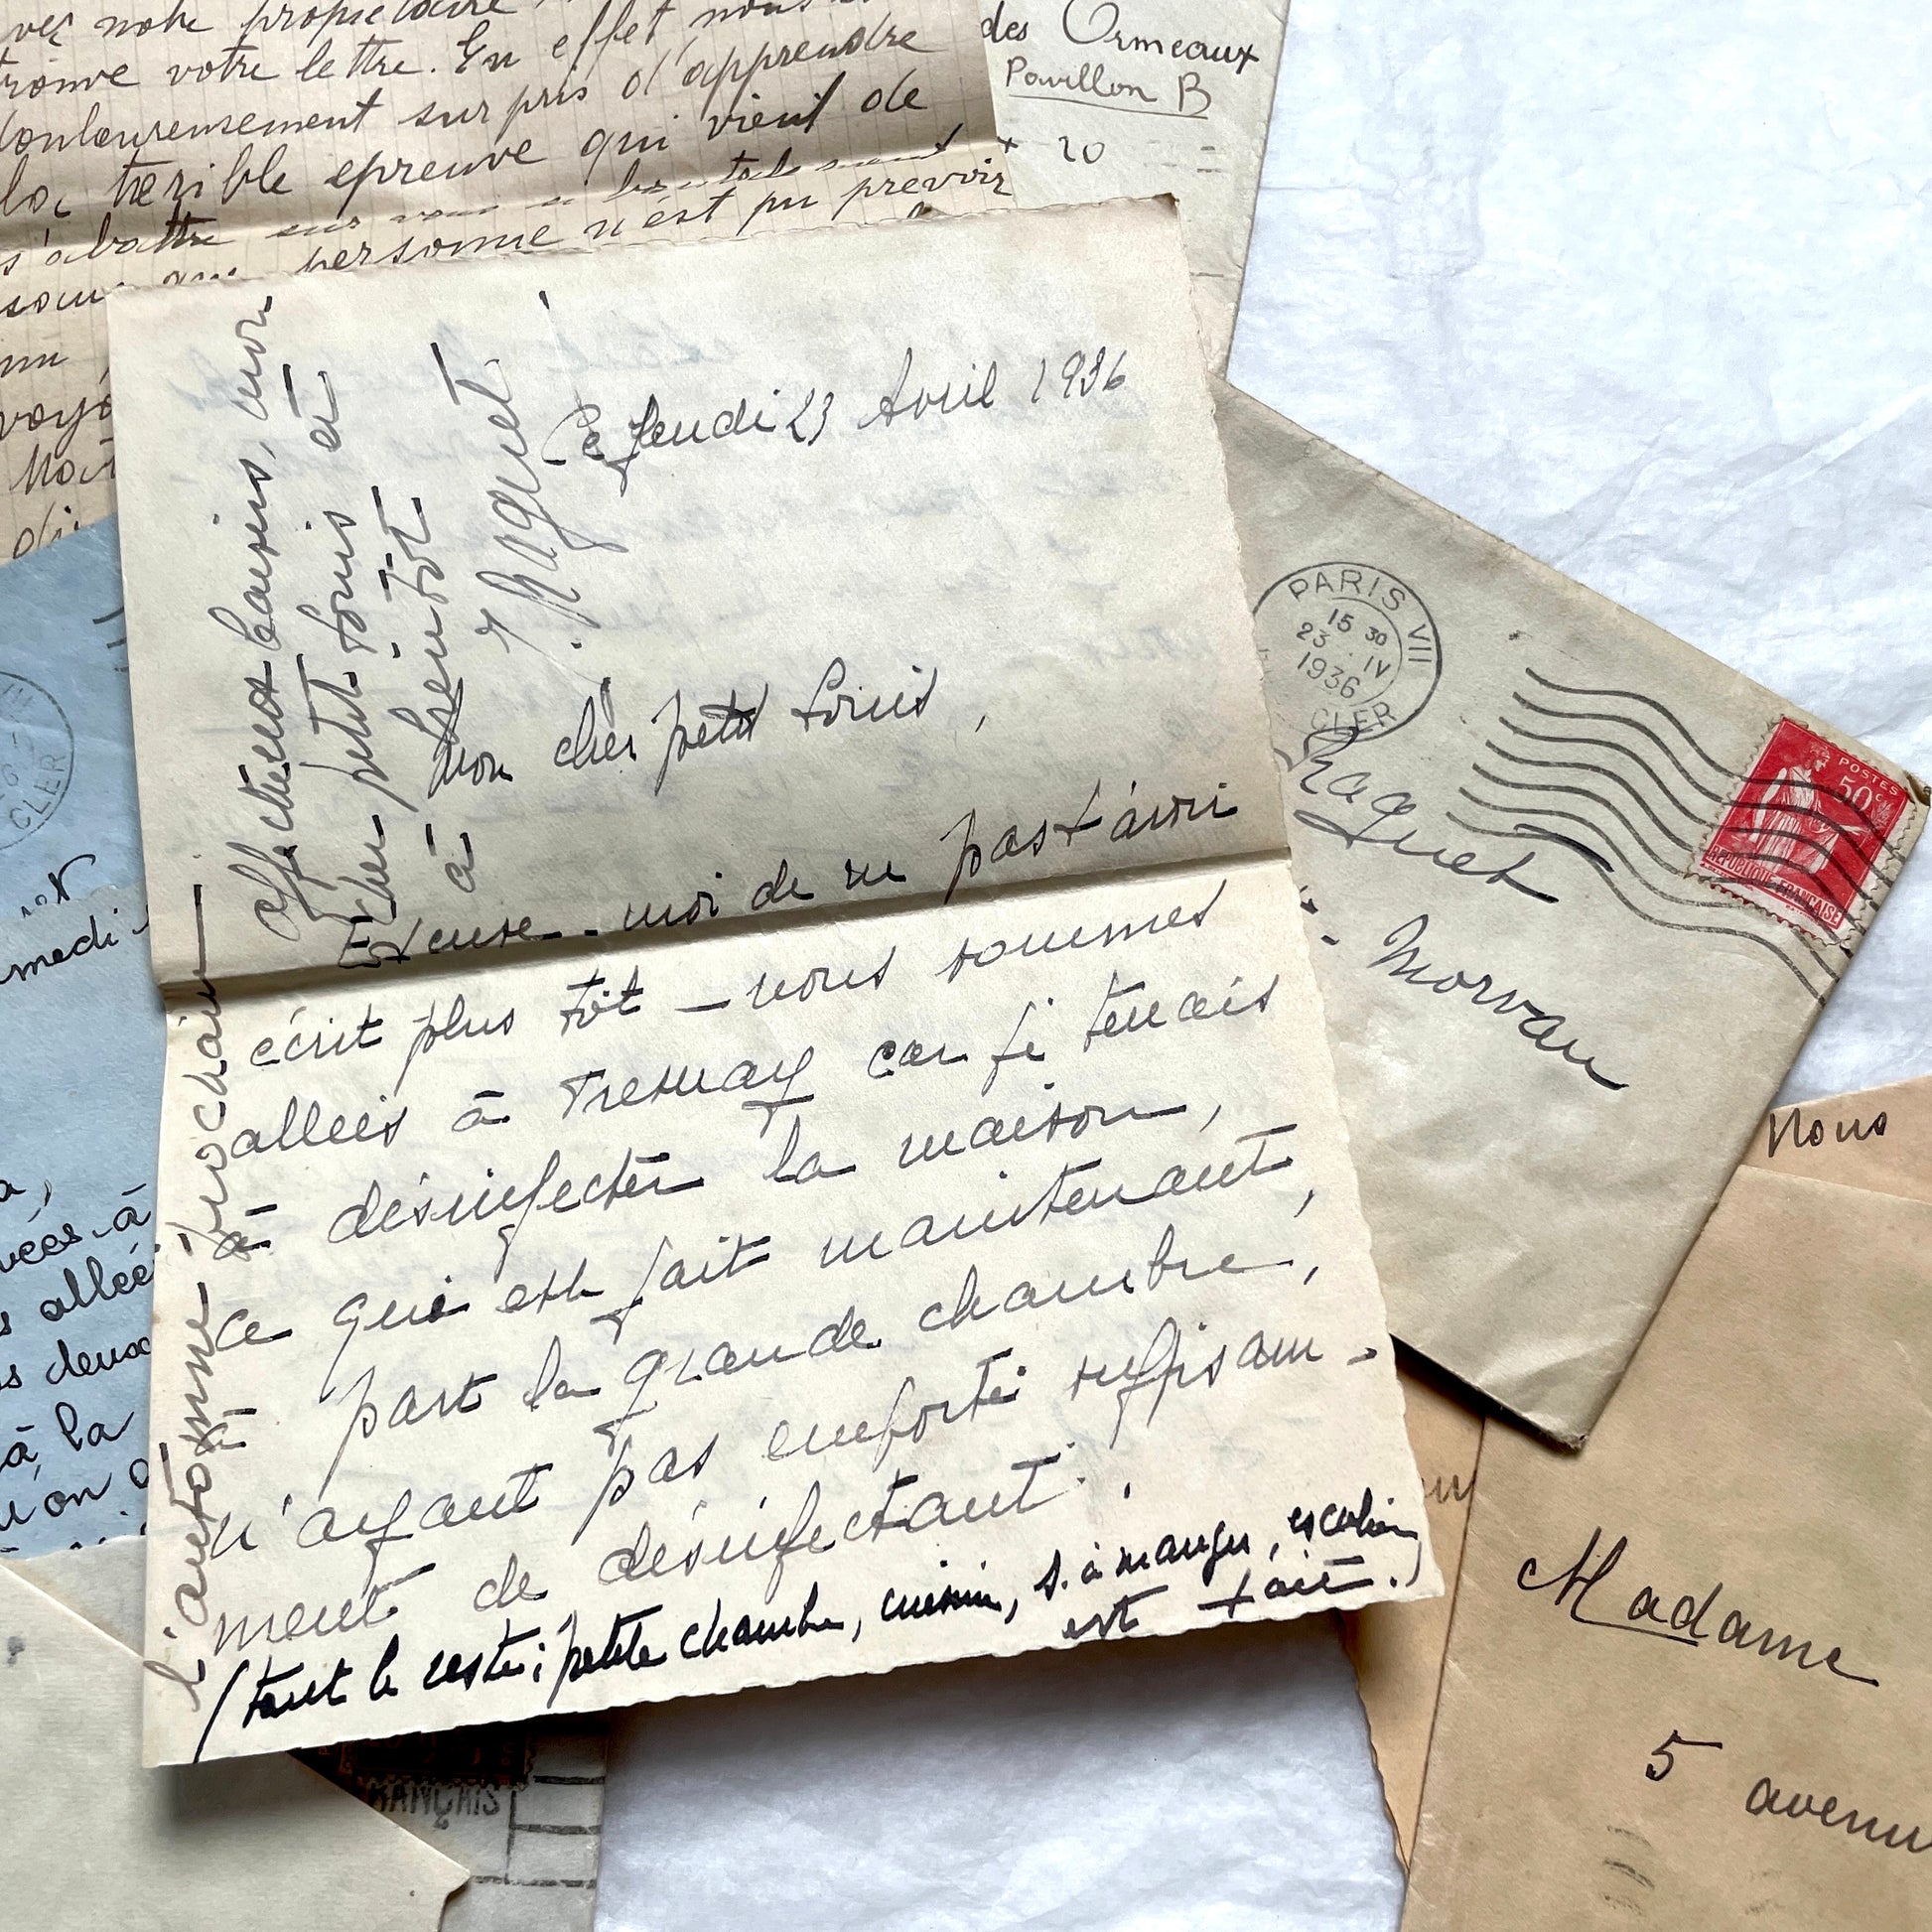 notre propriétaire
votre lettre. En effet nous
douloureusement surpris d'apprendre
la terrible epreuve qui vient de
s'abattre sur vous
personne n'est pu prevoir
voya
des Ormeaux
Pavillon B
20
Ce Jeudi 23 Avril 1936
Mon cher petit Louis,
Excuse-moi de ne pas t'avoir
écrit plus tôt – nous sommes
allées à Tresnay car je tenais
à désinfecter la maison,
ce qui est fait maintenant,
à part la grande chambre,
n'ayant pas emporté suffisam-
ment de désinfectant.
(tout le reste : petite chambre, cuisine, s. à manger, escalier
est fait.)
l'automne prochain –
affectueux baisers, mon
cher petit Louis et
à bientôt
Raguet
PARIS VII
15 30
23 IV
1936
CLER
POSTES
50c
REPUBLIQUE FRANÇAISE
Raguet
Morvan
Nous
Madame
5 avenu
CLER
medi
à
allée
deux
à la
on
RANÇAIS